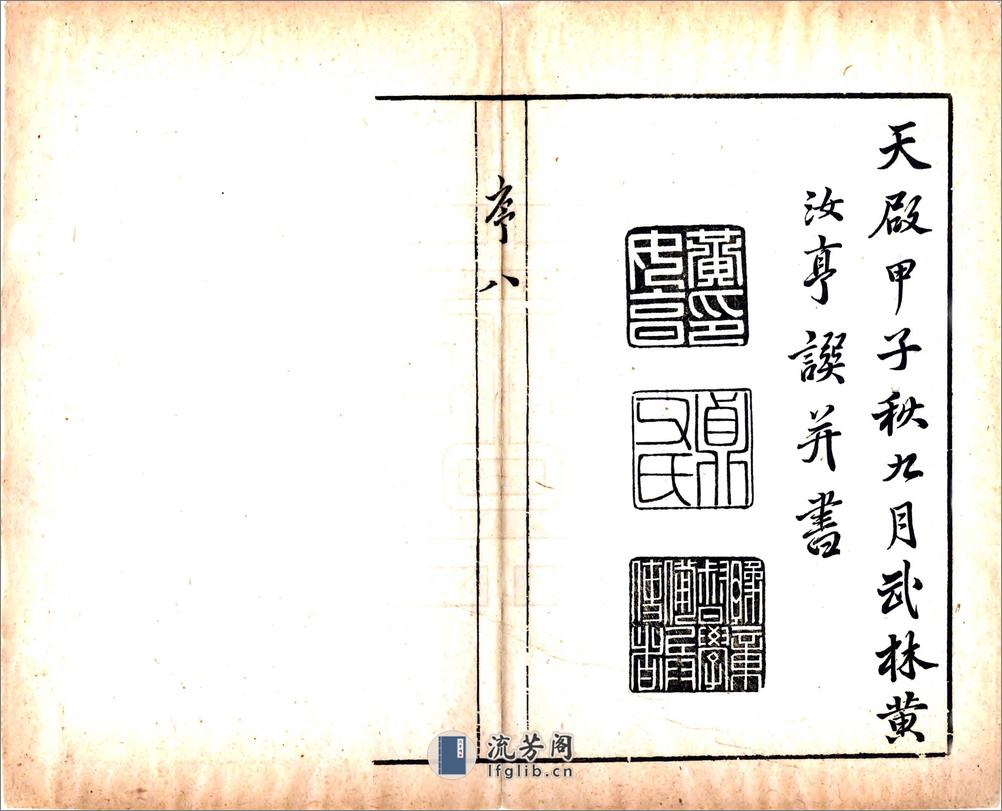 天啟甲子秋九月武林黄
汝亨譔并書
貞父氏
序八
流芳阁
lfglib.cn